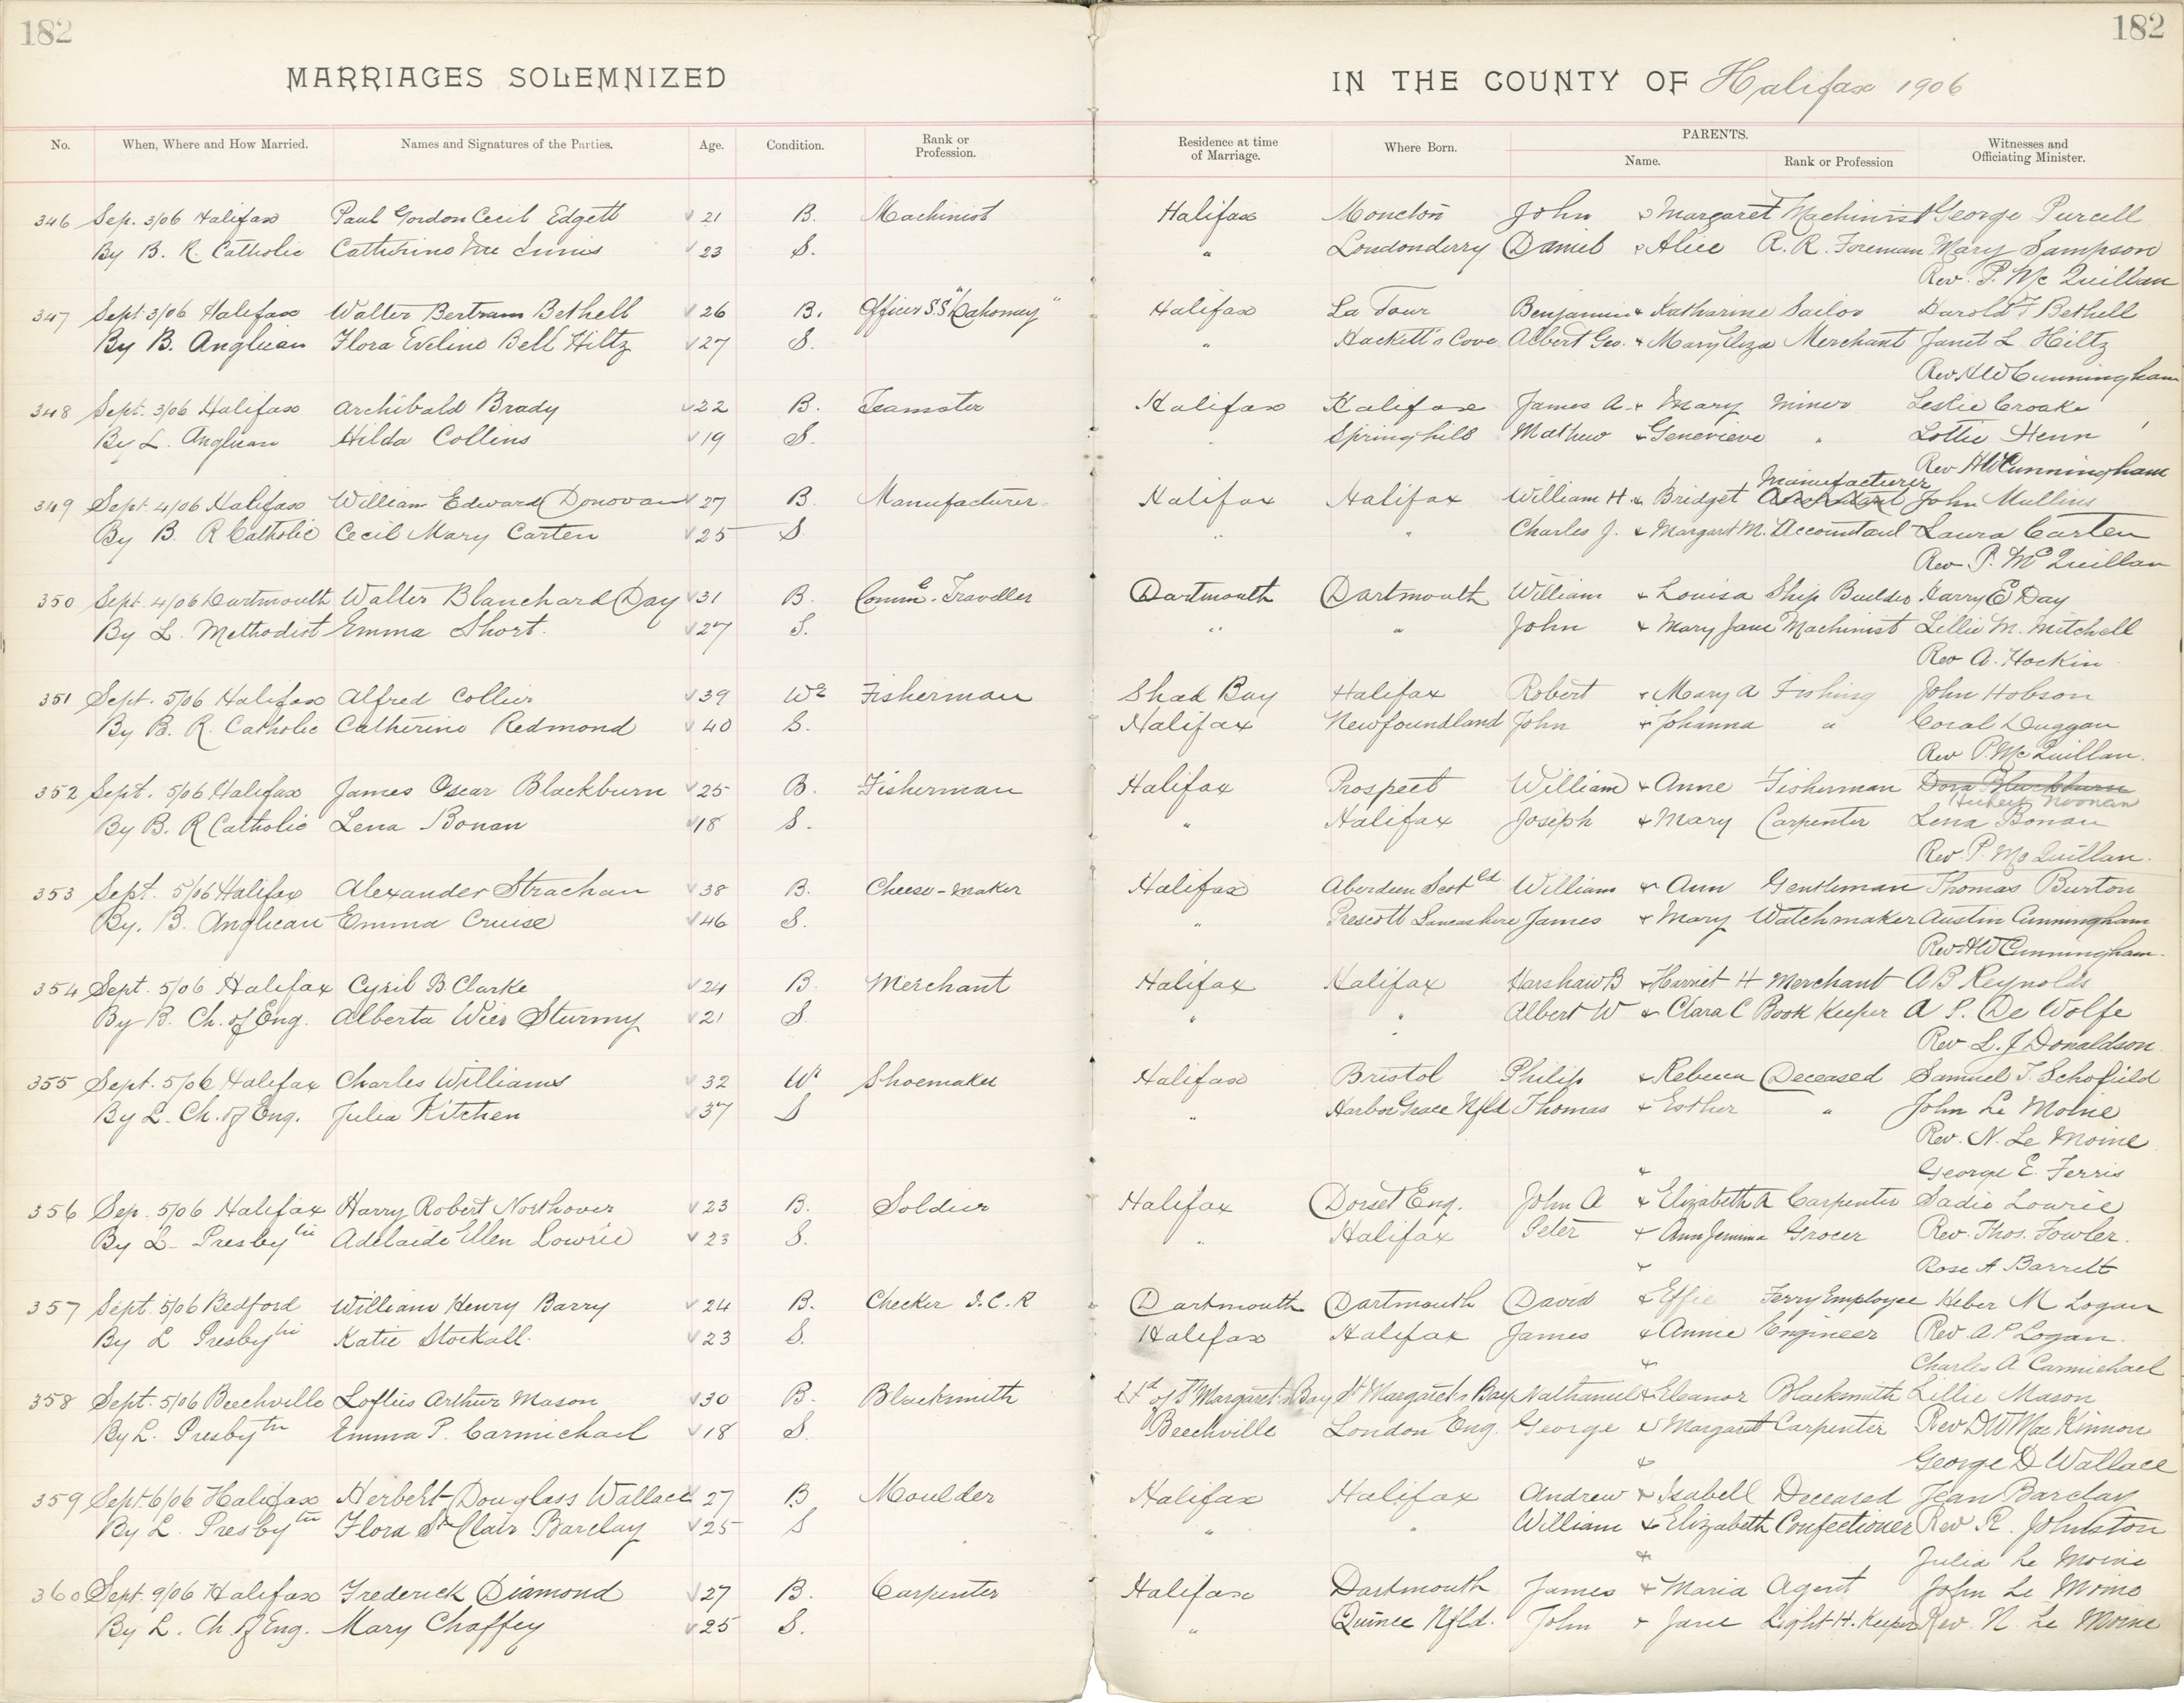 182
182
MARRIAGES SOLEMNIZED
IN THE COUNTY OF Halifax 1906
No. When, Where and How Married. Names and Signatures of the Parties. Age. Condition. Rank or Profession. Residence at time of Marriage. Where Born. PARENTS. Name. Rank or Profession Witnesses and Officiating Minister.
346 Sep. 3/06 Halifax Paul Gordon Cecil Edgett 21 B. Machinist Halifax Moncton John & Margaret Machinist George Purcell
By B. R. Catholic Catherine Innis 23 S. " Londonderry Daniel & Alice R. R. Foreman Mary Sampson
Rev. P. McQuillan
347 Sept 3/06 Halifax Walter Bertram Bethell 26 B. Officer S.S. "Dahomey" Halifax La Tour Benjamin & Katharine Sailor Harold F Bethell
By B. Anglican Flora Eveline Bell Hiltz 27 S. " Hackett's Cove Albert Geo. & Mary Eliza Merchant Janet L. Hiltz
Rev. H W Cunningham
348 Sept. 3/06 Halifax Archibald Brady 22 B. Teamster Halifax Halifax James A. & Mary Miner Leslie Croake
By L. Anglican Hilda Collins 19 S. " Springhill Mathew & Genevieve " Lottie Henn
Rev H W Cunningham
Manufacturer
349 Sept 4/06 Halifax William Edward Donovan 27 B. Manufacturer Halifax Halifax William H. & Bridget John Mullins
By B. R Catholic Cecil Mary Carten 25 S. " " Charles J. & Margaret M. Accountant Laura Carten
Rev P. McQuillan
350 Sept. 4/06 Dartmouth Walter Blanchard Day 31 B. Comme. Traveller Dartmouth Dartmouth William & Louisa Ship Builder Harry E Day
By L. Methodist Emma Short. 27 S. " " John & Mary Jane Machinist Lillie M. Mitchell
Rev A. Hockin
351 Sept. 5/06 Halifax Alfred Collier 39 Wr Fisherman Shad Bay Halifax Robert & Mary A Fishing John Hobson
By B. R. Catholic Catherine Redmond 40 S. Halifax Newfoundland John & Johanna " Coral Duggan
Rev P. McQuillan.
352 Sept. 5/06 Halifax James Oscar Blackburn 25 B. Fisherman Halifax Prospect William & Anne Fisherman Dora Blackburn
Hubert Noonan
By B. R Catholic Lena Bonan 18 S. " Halifax Joseph & Mary Carpenter Lena Bonan
Rev. P. McQuillan.
353 Sept. 5/06 Halifax Alexander Strachan 38 B. Cheese-maker Halifax Aberdeen Scotld William & Ann Gentleman Thomas Burton
By. B. Anglican Emma Cruise 46 S. " Prescott Lancashire James & Mary Watchmaker Austin Cunningham
Rev. H W Cunningham.
354 Sept. 5/06 Halifax Cyril B Clarke 24 B. Merchant Halifax Halifax Harshaw B & Harriet H Merchant A B Reynolds
By B. Ch. of Eng. Alberta Wier Sturmy 21 S. " " Albert W & Clara C Book Keeper A P. De Wolfe
Rev. L. J Donaldson
355 Sept. 5/06 Halifax Charles Williams 32 Wr Shoemaker Halifax Bristol Philip & Rebecca Deceased Samuel T. Schofield
By L. Ch. of Eng. Julia Kitchen 37 S " Harbor Grace Nfld Thomas & Esther " John Le Moine
Rev. N. Le Moine
& George E. Ferris
356 Sep. 5/06 Halifax Harry Robert Northover 23 B. Soldier Halifax Dorset Eng. John A & Elizabeth A Carpenter Sadie Lowrie
By L. Presbytn Adelaide Ellen Lowrie 23 S. " Halifax Peter & Ann Jemima Grocer Rev. Thos. Fowler.
& Rose A Barrett
357 Sept. 5/06 Bedford William Henry Barry 24 B. Checker I.C.R Dartmouth Dartmouth David & Effie Ferry Employee Heber M Logan
By L Presbytn Katie Stockall. 23 S. Halifax Halifax James & Annie Engineer Rev. A P Logan.
& Charles A Carmichael
358 Sept. 5/06 Beechville Loftus Arthur Mason 30 B. Blacksmith Hd of St Margaret's Bay St Margaret's Bay Nathaniel & Eleanor Blacksmith Lillie Mason
By L. Presbytn Emma P. Carmichael 18 S. Beechville London Eng. George & Margaret Carpenter Rev D W MacKinnon
& George D Wallace
359 Sept. 6/06 Halifax Herbert Douglass Wallace 27 B Moulder Halifax Halifax Andrew & Isabell Deceased Jean Barclay
By L. Presbytn Flora St Clair Barclay 25 S " " William & Elizabeth Confectioner Rev R. Johnston
& Julia Le Moine
360 Sept. 9/06 Halifax Frederick Diamond 27 B. Carpenter Halifax Dartmouth James & Maria Agent John Le Moine
By L. Ch. of Eng. Mary Chaffey 25 S. " Quince Nfld. John & Jane Light H. Keeper Rev. N. Le Moine